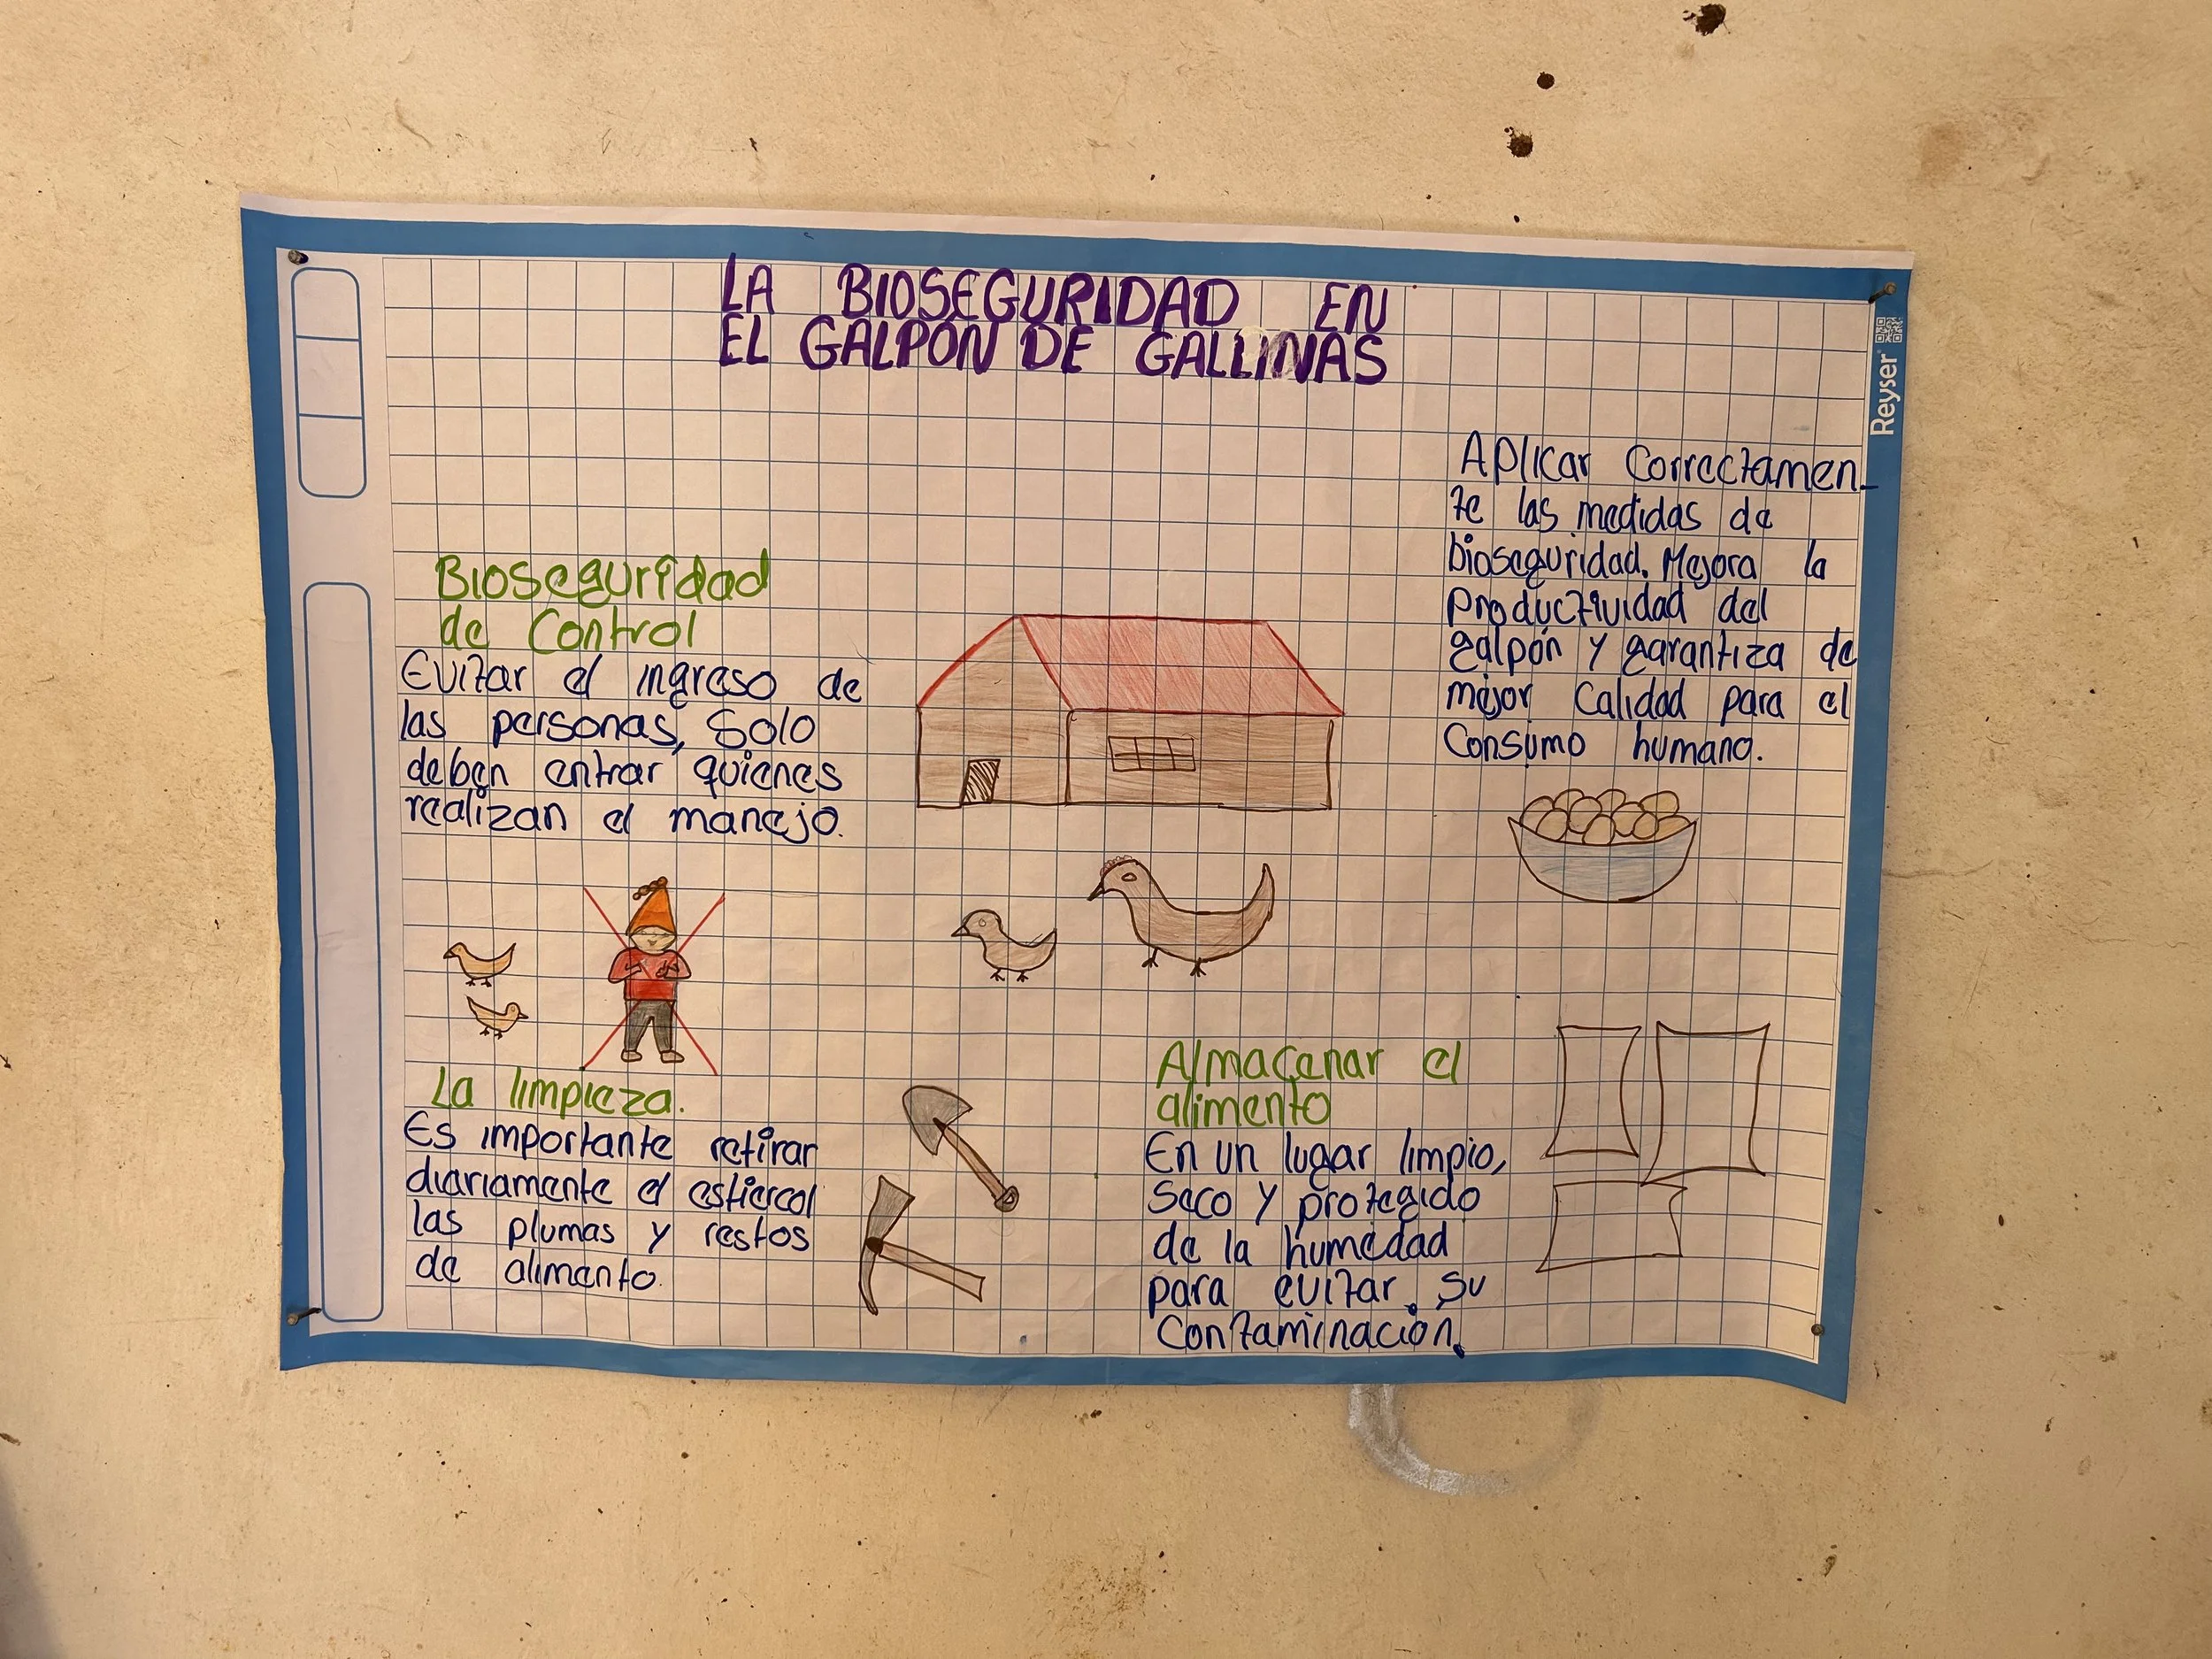 LA BIOSEGURIDAD EN
EL GALPÓN DE GALLINAS
Reyser
Bioseguridad
de Control
Evitar el ingreso de
las personas, Solo
deben entrar quienes
realizan el manejo.
Aplicar Correctamen-
te las medidas de
bioseguridad. Mejora la
Productividad del
galpón y garantiza de
mejor Calidad para el
Consumo humano.
La limpieza.
Es importante retirar
diariamente el estiercol
las plumas y restos
de alimento.
Almacenar el
alimento
En un lugar limpio,
Seco y protegido
de la humedad
para evitar. Su
Contaminación.